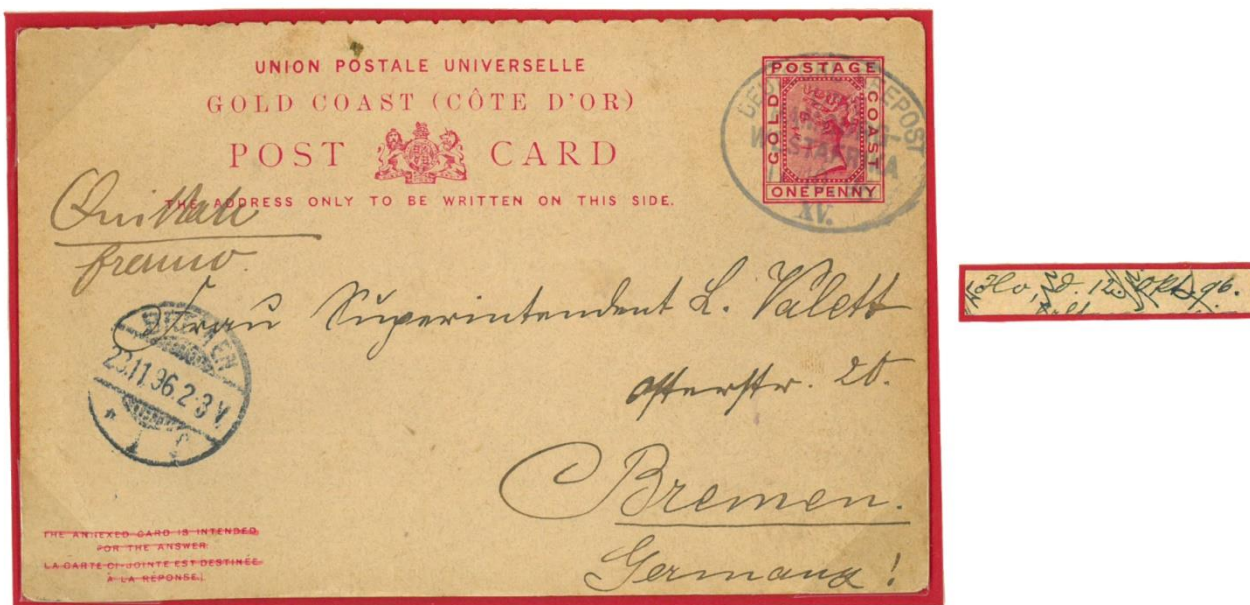 UNION POSTALE UNIVERSELLE
GOLD COAST (CÔTE D'OR)
POST CARD
THE ADDRESS ONLY TO BE WRITTEN ON THIS SIDE.
POSTAGE
GOLD
COAST
ONE PENNY
WESTAFRIKA
XV.
Quittah
franco.
Frau Superintendent L. Valett
Osterstr. 20.
Bremen.
Germany!
BREMEN
23.11.96.2-3V
THE ANNEXED CARD IS INTENDED
FOR THE ANSWER.
LA CARTE CI-JOINTE EST DESTINÉE
À LA RÉPONSE.
Ho, d. 12. Okt. 96.